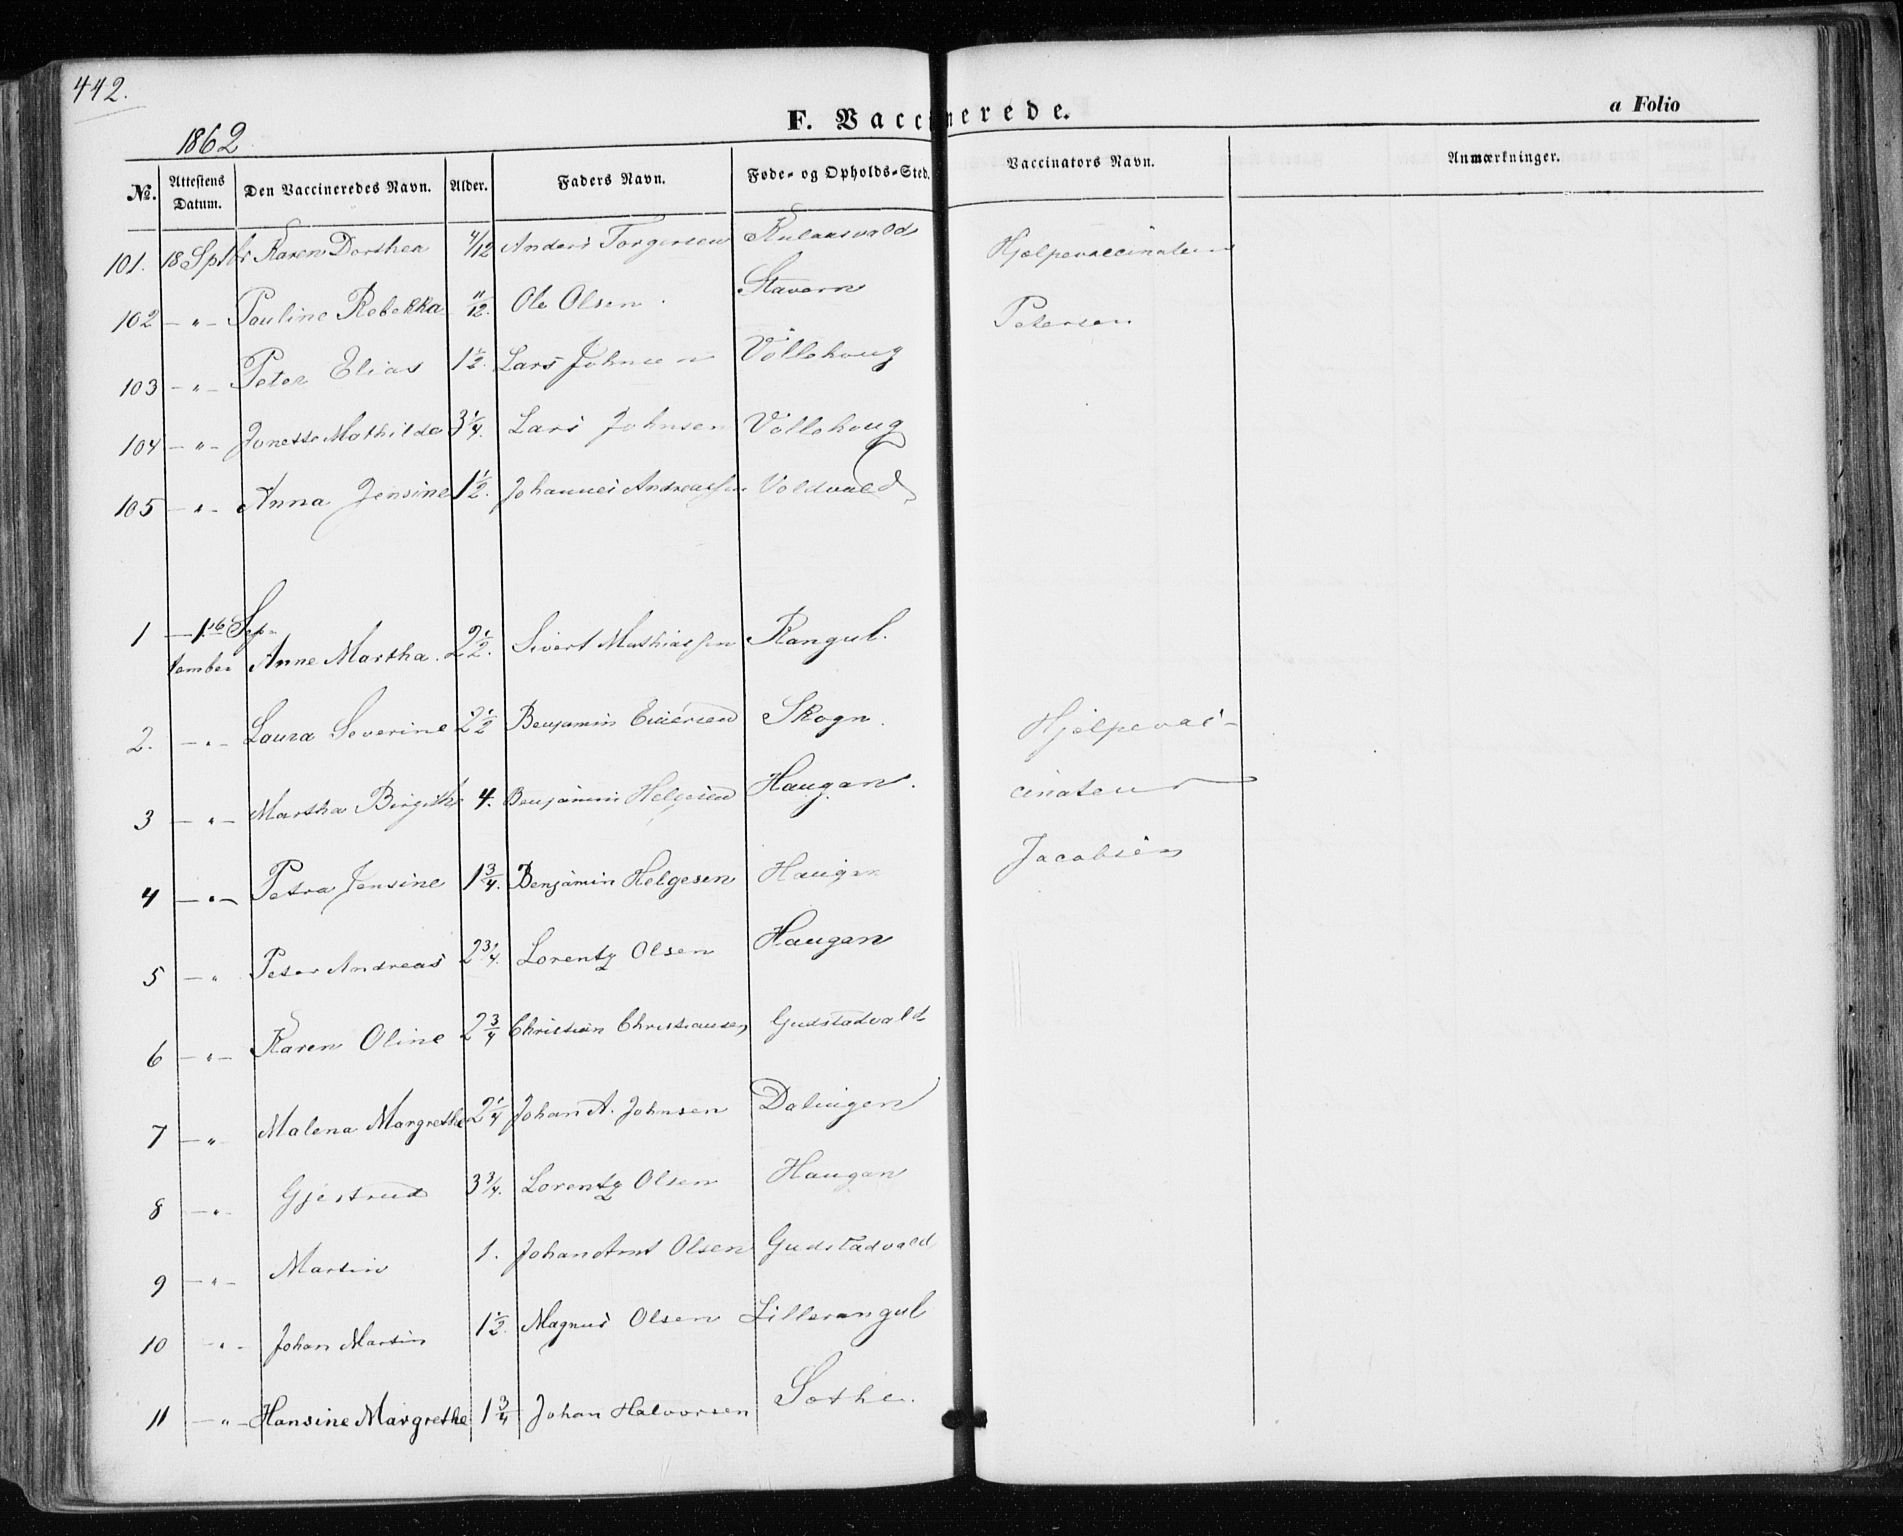 442.
F. Vaccinerede.
a Folio
1862
№. Attestens Datum. Den Vaccineredes Navn. Alder. Faders Navn. Føde- og Opholds-Sted. Vaccinators Navn. Anmærkninger.
101. 18 Sptbr Karen Dorthea 4/12 Anders Torgersen Hjelpevaccinateur
102 — " — Pauline Rebekka 11/12. Ole Olsen. Stavern Petersen
103 — " — Peter Elias 1 1/2. Lars Johnsen Vollehoug
104 — " — Jonette Mathilde 3 1/4. Lars Johnsen Vollehoug
105 — " — Anna Jensine 1 1/2. Johannes Andreassen Voldvald
1 — 16 Sep-
tember Anne Martha. 2 1/2. Sivert Mathiassen Rangul.
2. — " — Laura Severine 2 1/2 Benjamin Skogn. Hjelpevac-
3 — " — Martha Birgithe 4. Benjamin Helgesen Haugan. cinateur
4 — " — Petra Jensine 1 3/4. Benjamin Helgesen Haugan Jacobsen
5 — " Peter Andreas 2 3/4. Lorentz Olsen Haugan
6 — " — Karen Oline 2 3/4 Christian Christiansen Gudstadvald
7 — " Malena Margrethe 2 1/4 Johan A. Johnsen Dalingen
8 — " — Gjertrud 3 3/4. Lorentz Olsen Haugan
9 — " — Martin 1. Johan Arnt Olsen Gudstadvald
10 — " — Johan Martin 1 1/2. Magnus Olsen Lillerangul
11 — " — Hansine Margrethe 1 3/4 Johan Halvorsen Sothe.